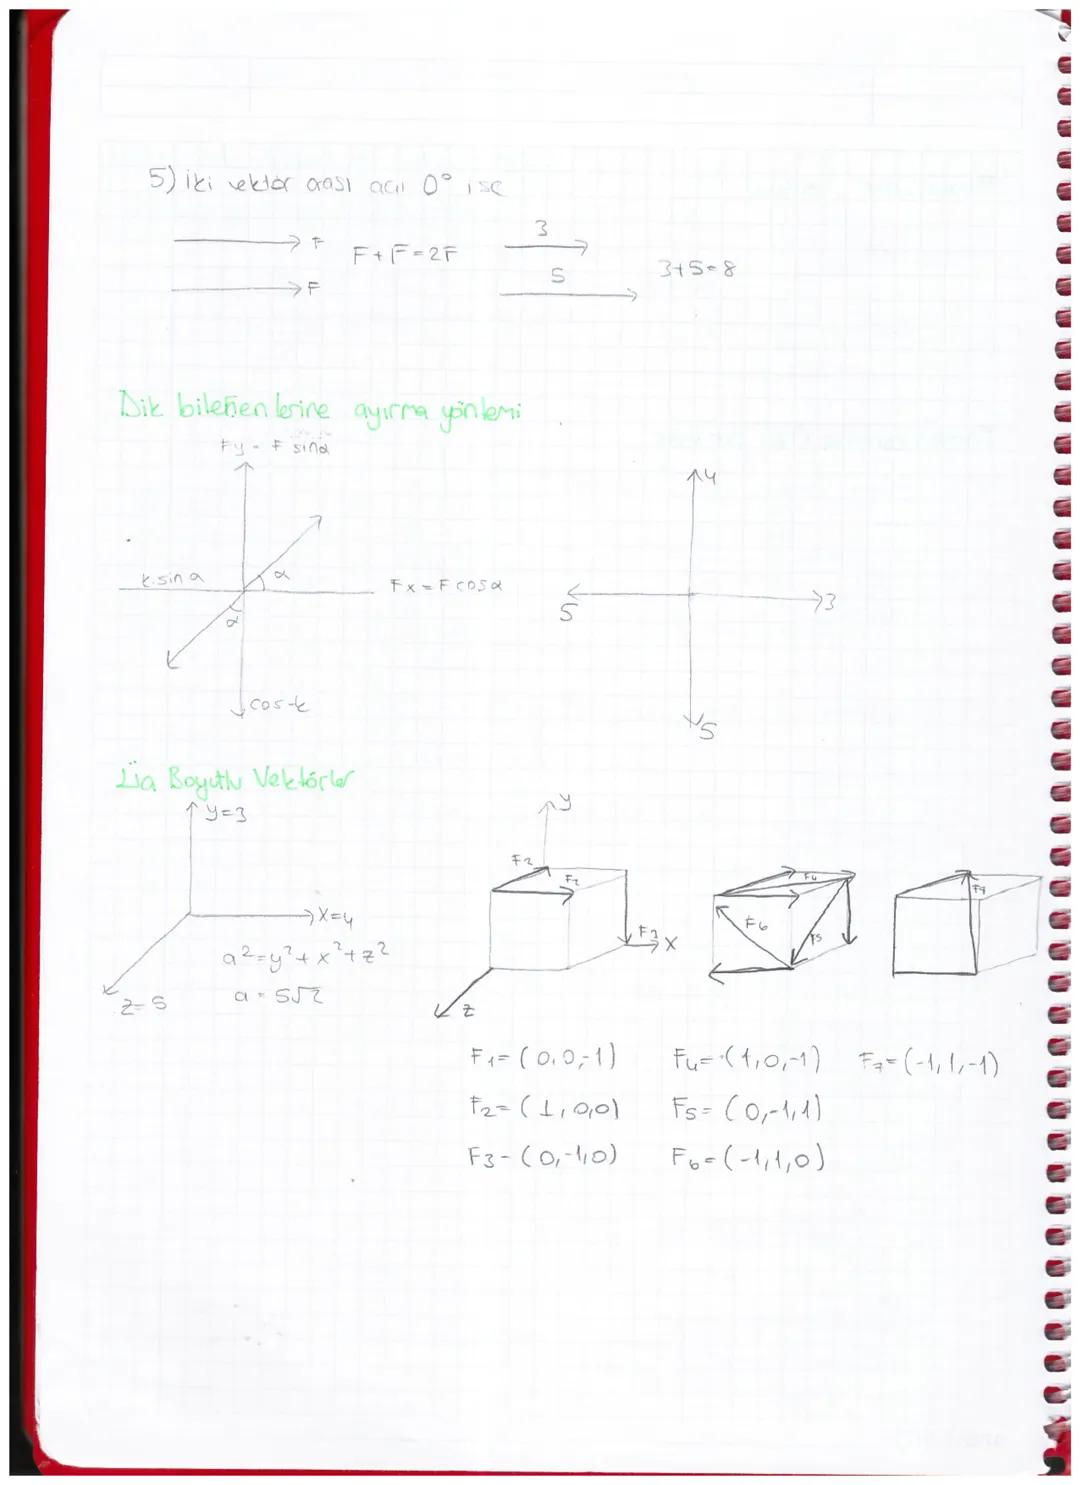 5) iki vektör arası açı 0° ise
F
F
F+F=2F
3
5
3+5=8
Dik bileşenlerine ayırma yöntemi
Fy = F sinα
α
k.sin α
Fx = F cosα
α
cos-k
4
5
3
5
Üç Boyutlu Vektörler
y=3
x=4
z=5
a²=y²+x²+z²
a=5√2
y
F2
F2
F3
x
z
F4
F6
F5
F7
F1=(0,0,-1)
F4=(1,0,-1)
F7=(-1,1,-1)
F2=(1,0,0)
F5=(0,-1,1)
F3-(0,-1,0)
F6=(-1,1,0)